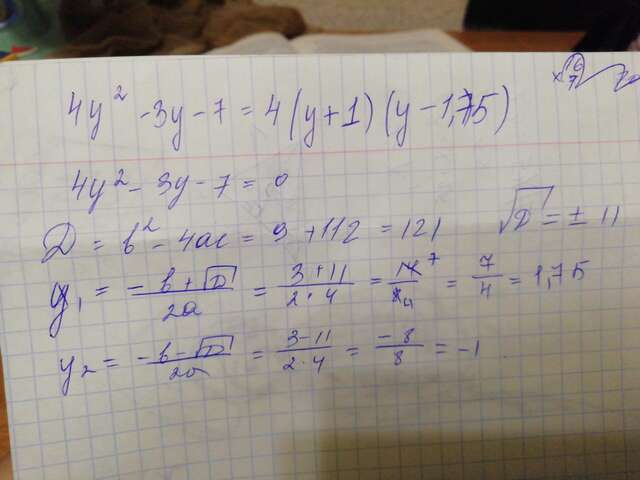 4y² - 3y - 7 = 4(y+1)(y-1,75)
4y² - 3y - 7 = 0
D = b² - 4ac = 9 + 112 = 121 √D = ± 11
y₁ = (-b + √D)/(2a) = (3+11)/(2·4) = 14/8 = 7/4 = 1,75
y₂ = (-b - √D)/(2a) = (3-11)/(2·4) = (-8)/8 = -1